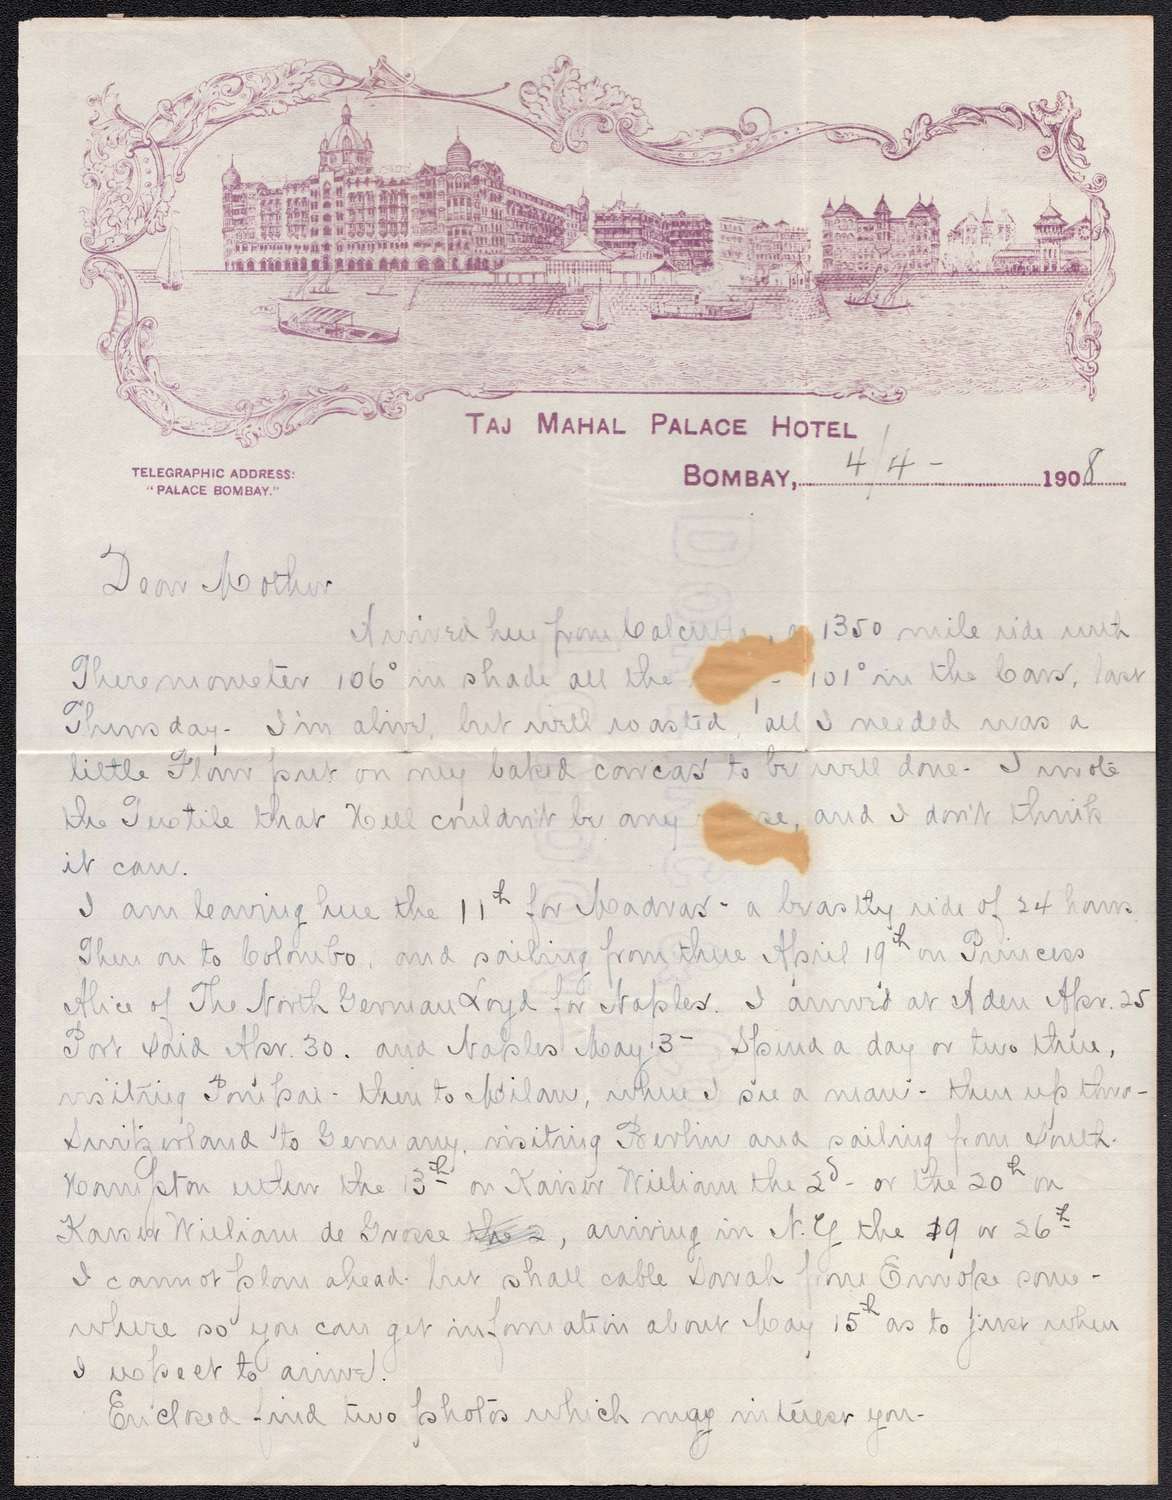 TAJ MAHAL PALACE HOTEL
TELEGRAPHIC ADDRESS:
"PALACE BOMBAY."
BOMBAY, 4/4 - 1908
Dear Mother
Arrived here from Calcutta, a 1350 mile ride with
Theremometer 106° in shade all the - 101° in the Cars, last
Thursday - I'm alive, but well roasted, all I needed was a
little Flour put on my baked carcas to be well done - I wrote
the Textile that Hell couldn't be any , and I don't think
it can.
I am leaving here the 11th for Madras - a beastly ride of 24 hours.
Then on to Colombo, and sailing from there April 19th on Princess
Alice of The North German Loyd for Naples. I arrive at Aden Apr. 25
Port Said Apr. 30. and Naples May 3 - Spend a day or two there,
visiting Pompai - then to Milan, where I see a man - then up thro-
Switzerland to Germany, visiting Berlin and sailing from South-
Hampton either the 13th on Kaiser William the 2d - or the 20th on
Kaiser William de Grosse the 2, arriving in N.Y the 19 or 26th
I cannot plan ahead - but shall cable Sarah from Europe some-
where so you can get information about May 15th as to just when
I expect to arrive.
Enclosed find two photos which may interest you -